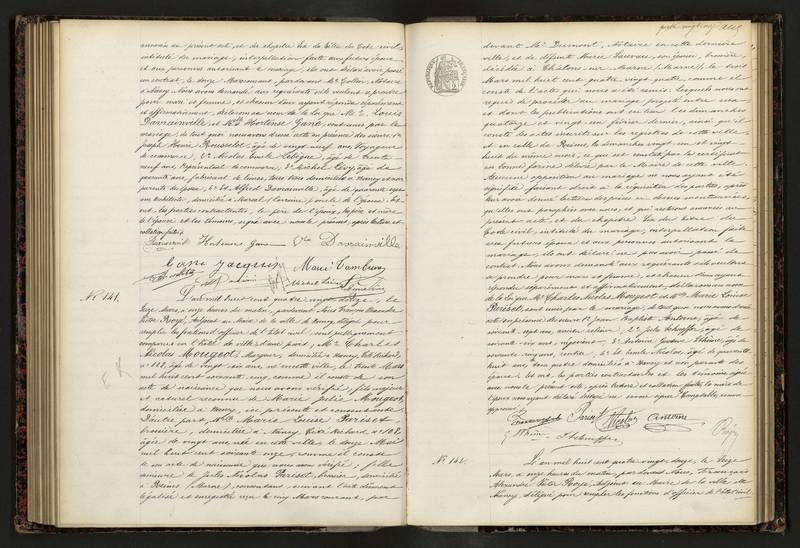 annexés au présent acte, et du chapitre six du Titre du Code civil,
intitulé du mariage, interpellation faite aux futurs époux
et aux personnes autorisant le mariage, ils ont déclaré avoir passé
un contrat, le douze
à Nancy. Nous avons demandé aux requérants s'ils veulent se prendre
pour mari et femme, et chacun d'eux ayant répondu séparément
et affirmativement, déclarons au nom de la loi que Mr. Louis
Davrainville et Hortense Gans, sont unis par le
mariage; de tout quoi nous avons dressé acte en présence des sieurs, 1°
Joseph Henri Rousselet, âgé de vingt neuf ans, Voyageur
de commerce, 2° Nicolas Emile Lebègue, âgé de trente
neuf ans, Représentant de commerce, 3° Michel Lévy, âgé de
quarante ans, fabricant de limes, tous trois domiciliés à Nancy et non
parents des époux; 4° et Alfred Davrainville, âgé de quarante
ans, Architecte, domicilié à
et, les parties contractantes, le père de l'époux, les père et mère
de l'épouse et les témoins, signé avec nous le présent, après lecture et
collation faites.
Hortense Gans Davrainville
Gans Jacquin Marie
N° 141.
L'an mil huit cent quatre vingt douze, le
seize Mars, à onze heures du matin, pardevant Nous François Alexandre
Victor Royé, Adjoint au Maire de la ville de Nancy, délégué pour
remplir les fonctions d'officier de l'Etat civil, sont publiquement
comparus en l'hôtel de ville d'une part, Mr. Charles
Nicolas Mougeot, domicilié à Nancy,
n° 118, âgé de vingt six ans, né en cette ville, le trente Mars
mil huit cent soixante cinq, comme il conste de son
acte de naissance que nous avons vérifié; fils majeur
et naturel reconnu de Marie Julie Mougeot,
domiciliée à Nancy, ici présente et consentante.
D'autre part, Mlle Marie Louise Parisot
brossière, domiciliée à Nancy, n° 118,
âgée de vingt ans, née en cette ville, le douze Mai
mil huit cent soixante onze, comme il conste
de son acte de naissance que nous avons vérifié; fille
mineure de Jules Nicolas Parisot, brossier, domicilié
à Reims (Marne), consentant suivant l'acte dûment
légalisé et enregistré reçu le cinq Mars courant, par
devant Me. Dumont, Notaire en cette dernière
ville; et de défunte Marie son épouse, brossière,
décédée à Châlons sur Marne (Marne), le trois
Mars mil huit cent quatre vingt quatre, comme il
conste de l'acte qui nous a été remis. Lesquels nous ont
requis de procéder au mariage projeté entre eux
et dont les publications ont eu lieu les dimanches
quatorze et vingt un février dernier, ainsi qu'il
conste des actes inscrits sur les registres de cette ville
et en celle de Reims, les dimanches vingt un et vingt
huit du même mois, ce qui est constaté par le certificat
en bonne forme délivré par le Maire de cette ville.
Aucune opposition au mariage ne nous ayant été
signifiée, faisant droit à la réquisition des parties, après
leur avoir donné lecture des pièces ci dessus mentionnées,
qu'elles ont paraphées avec nous, et qui resteront annexées au
présent acte, et du chapitre six du titre du
Code civil, intitulé du mariage, interpellation faite
aux futurs époux et aux personnes autorisant le
mariage, ils ont déclaré ne pas avoir passé de
contrat. Nous avons demandé aux requérants s'ils veulent
se prendre pour mari et femme, et chacun d'eux ayant
répondu séparément et affirmativement, déclarons au nom
de la loi que Mr. Charles Nicolas Mougeot et Mlle Marie Louise
Parisot, sont unis par le mariage; de tout quoi nous avons dressé
acte en présence des sieurs, 1° Jean Baptiste Antoine, âgé de
soixante sept ans, ancien 2° Jules Schaeffer, âgé de
soixante six ans, négociant, 3° Antoine Gustave Thème, âgé de
soixante cinq ans, rentier, 4° et Emile Nicolas, âgé de quarante
huit ans, tous quatre domiciliés à Nancy et non parents des
époux. Et ont, les parties contractantes et les témoins signé
avec nous le présent acte, après lecture et collation faites, la mère de
l'époux non ayant déclaré ne savoir signer.
approuvé.
Parisot Nicolas Antoine
Schaeffer
N° 142.
L'an mil huit cent quatre vingt douze, le seize
Mars, à onze heures du matin, par devant Nous, François
Alexandre Victor Royé, Adjoint au Maire de la ville de
Nancy, délégué pour remplir les fonctions d'officier de l'état civil